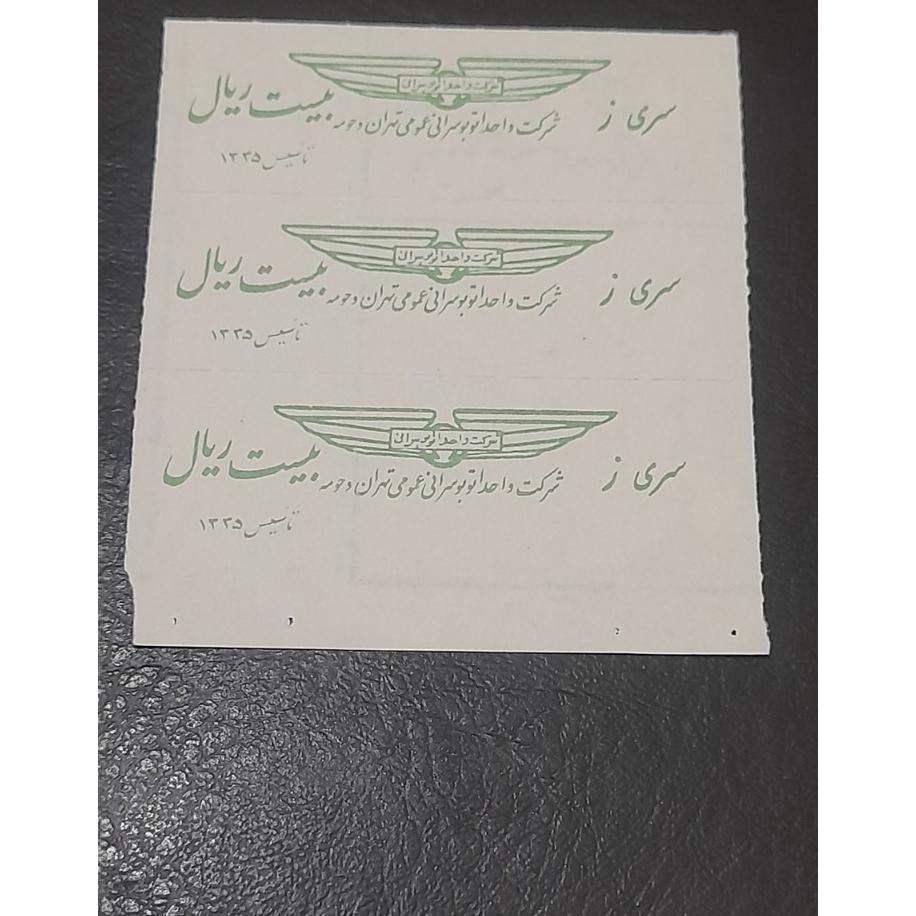 شرکت واحد اتوبوسرانی
سری ز
شرکت واحد اتوبوسرانی عمومی تهران و حومه
بیست ریال
تاسیس ۱۳۳۵
شرکت واحد اتوبوسرانی
سری ز
شرکت واحد اتوبوسرانی عمومی تهران و حومه
بیست ریال
تاسیس ۱۳۳۵
شرکت واحد اتوبوسرانی
سری ز
شرکت واحد اتوبوسرانی عمومی تهران و حومه
بیست ریال
تاسیس ۱۳۳۵